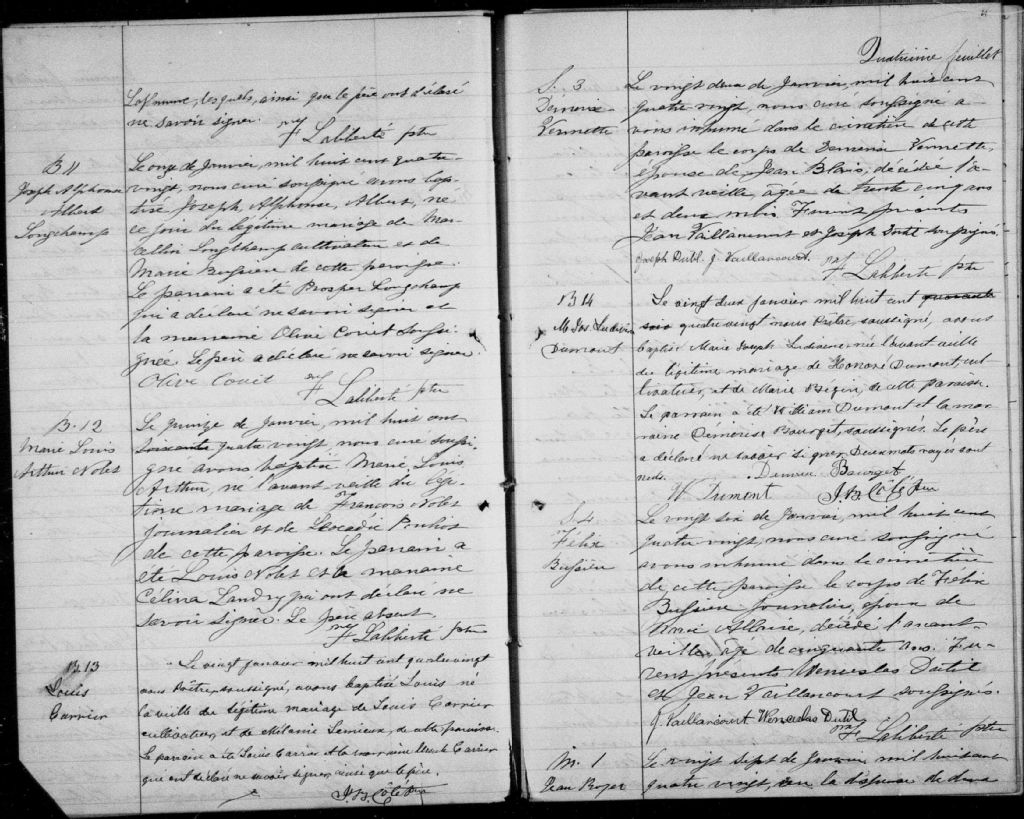 lesquels, ainsi que le père ont déclaré
ne savoir signer.
Laliberté ptre
B. 11
Joseph Alphonse
Albert
Longchamp
Le onze de Janvier, mil huit cent quatre-
vingt, nous curé soussigné avons bap-
tisé Joseph, Alphonse, Albert, né
ce jour du légitime mariage de Mar-
cellin Longchamp cultivateur et de
Marie Bussière de cette paroisse.
Le parrain a été Prosper Longchamp
qui a déclaré ne savoir signer et
la marraine Olive Couet soussi-
gnée. Le père a déclaré ne savoir signer.
Olive Couet
Laliberté ptre
B. 12
Marie Louis
Arthur Nolet
Le quinze de Janvier, mil huit cent
soixante quatre vingt nous curé soussi-
gné avons baptisé Marie, Louis,
Arthur, né l'avant veille du légi-
time mariage de François Nolet
journalier et de Léocadie
de cette paroisse. Le parrain a
été Louis Nolet et la marraine
Célina Landry qui ont déclaré ne
savoir signer. Le père absent.
Laliberté ptre
B. 13
Louis
Carrier
Le vingt janvier mil huit cent quatre vingt
nous Prêtre, soussigné, avons baptisé Louis né
la veille du légitime mariage de Louis Carrier
cultivateur, et de Mélanie Lemieux, de cette paroisse.
Le parrain a été Louis Carrier et la marraine Carrier
qui ont déclaré ne savoir signer ainsi que le père.
J. B. Côté Ptre
Quatrième feuillet
S. 3
Démerise
Vermette
Le vingt deux de Janvier, mil huit cent
quatre vingt, nous curé soussigné a-
vons inhumé dans le cimetière de cette
paroisse le corps de Demerise Vermette,
épouse de Jean Blais, décédée l'a-
vant veille âgée de trente cinq ans
et deux mois. Furent présents
Jean Vaillancourt et Joseph Dutil soussignés.
Joseph Dutil J. Vaillancourt
Laliberté ptre
B 14
M. Jos. Ludivine
Dumont
Le vingt deux janvier mil huit cent quarante
six quatre vingt nous Prêtre, soussigné, avons
baptisé Marie Joseph Ludivine, née l'avant veille
du légitime mariage de Honoré Dumont, cul-
tivateur, et de Marie Bégin, de cette paroisse.
Le parrain a été William Dumont et la mar-
raine Démerise Bourget, soussignés. Le père
a déclaré ne savoir signer. Deux mots rayés sont
nuls. Demerise Bourget
W Dumont J. B. Côté Ptre
S. 4
Félix
Bussière
Le vingt six de Janvier, mil huit cent
quatre vingt, nous curé soussigné
avons inhumé dans le cimetière
de cette paroisse le corps de Félix
Bussière Journalier, époux de
Marie Allaire, décédé l'avant-
veille âgé de cinquante ans. Fu-
rent présents Wenceslas Dutil
et Jean Vaillancourt soussignés.
J. Vaillancourt Wenceslas Dutil
Laliberté ptre
M. 1
Jean Royer
Le vingt sept de Janvier mil huit cent
quatre vingt, vu la dispense de deux